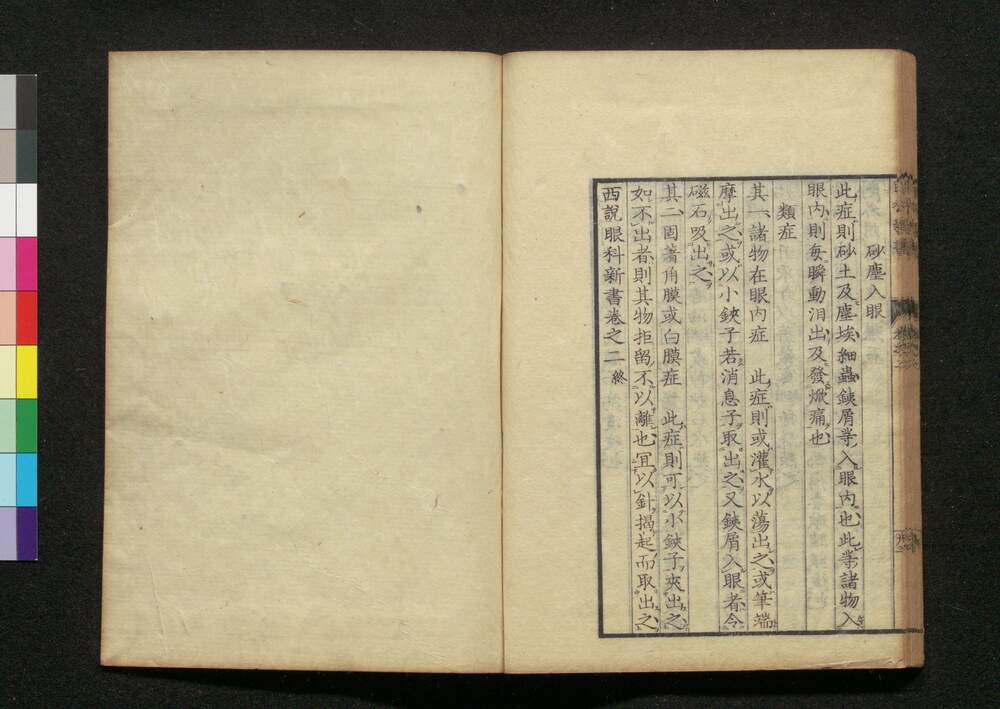 砂塵入眼
此症則砂土及塵埃細蟲鉄屑等入眼内也此等諸物入
眼内則每瞬動泪出及發焮痛也
類症
其一諸物在眼内症　此症則或灌水以蕩出之或筆端
摩出之或以小鋏子若消息子取出之又鉄屑入眼者令
磁石吸出之
其二固著角膜或白膜症　此症則可以小鋏子夾出之
如不出者則其物拒留不以離也冝以針揭起而取出之
西說眼科新書卷之二終